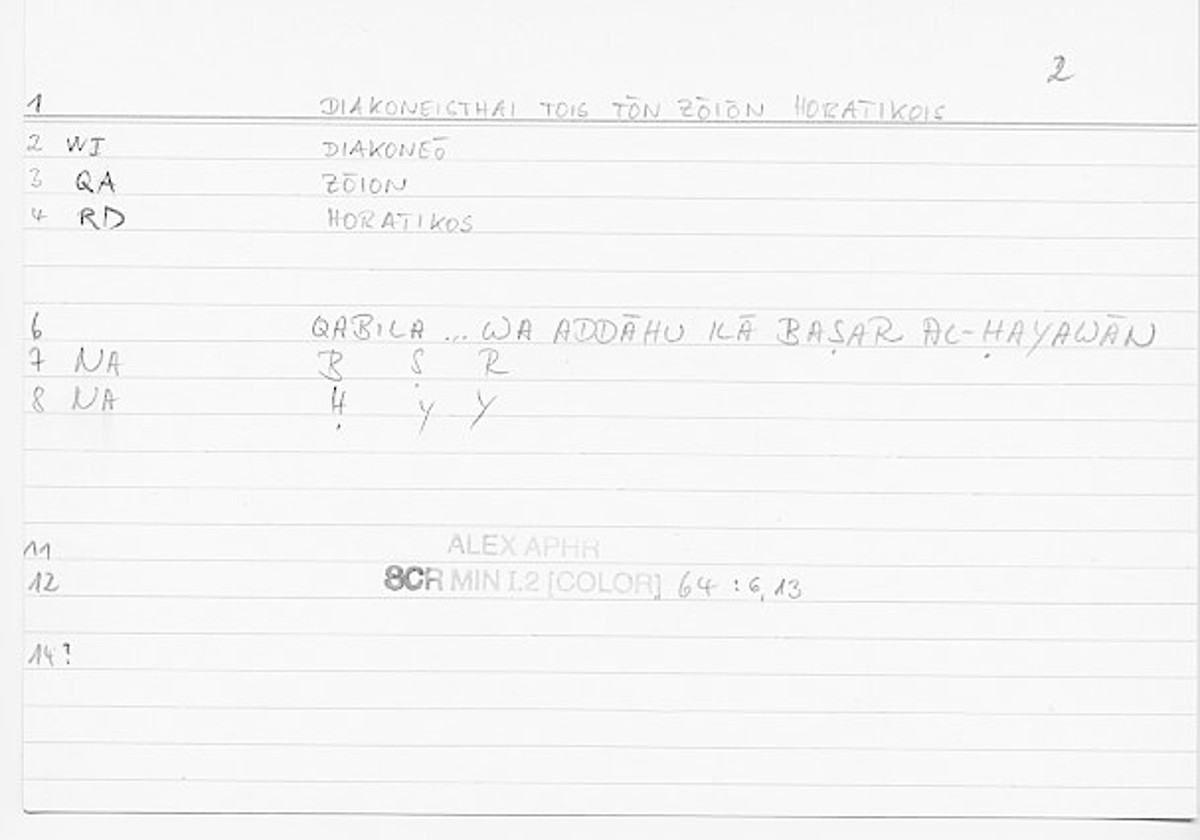 2
1 DIAKONEISTHAI TOIS TŌN ZŌIŌN HORATIKOIS
2 WI DIAKONEŌ
3 QA ZŌION
4 RD HORATIKOS
6 QABILA ... WA ADDĀHU ILĀ BAṢAR AL-ḤAYAWĀN
7 NA B Ṣ R
8 NA Ḥ Y Y
11 ALEX APHR
12 SCR MIN I.2 [COLOR] 64 : 6, 13
14?